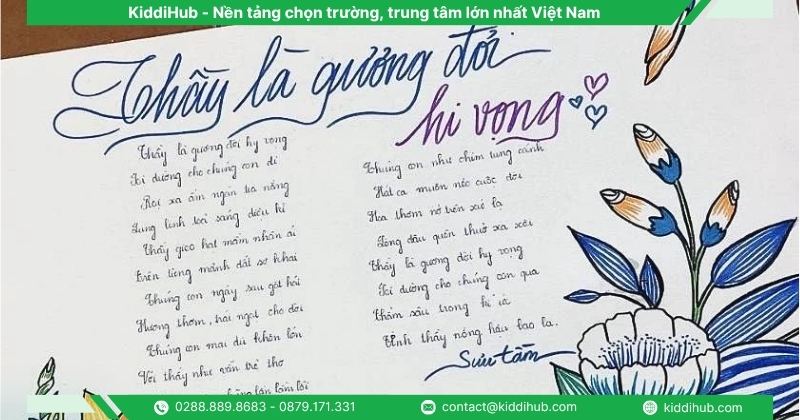 KiddiHub - Nền tảng chọn trường, trung tâm lớn nhất Việt Nam
Thầy là gương đời
hi vọng
Thầy là gương đời hy vọng
Soi đường cho chúng con đi
Rọi xa ấm ngàn tia nắng
Lung linh toả sáng diệu kì
Thầy gieo hạt mầm nhân ái
Trên từng mảnh đất sơ khai
Chúng con ngày sau gặt hái
Hương thơm, trái ngọt cho đời
Chúng con mai dù khôn lớn
Với thầy như vẫn trẻ thơ
lần lầm lỗi
Chúng con như chim tung cánh
Hát ca muôn nẻo cuộc đời
Hoa thơm nở trên xứ lạ
Lòng đâu quên thuở xa xôi
Thầy là gương đời hy vọng
Soi đường cho chúng con qua
Thẳm sâu trong kí ức
Tình thầy nồng hậu bao la.
Sưu tầm
0288.889.8683 - 0879.171.331
contact@kiddihub.com
kiddihub.com